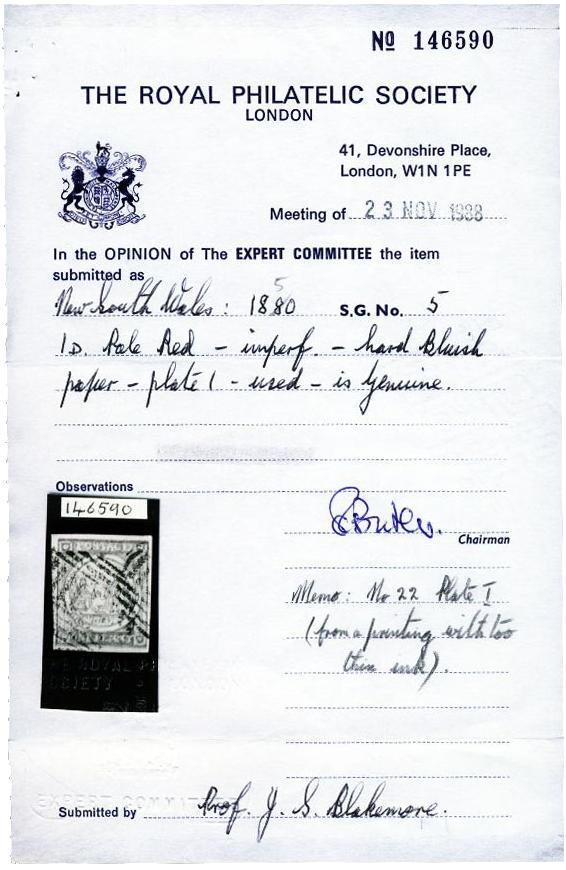 No 146590
THE ROYAL PHILATELIC SOCIETY
LONDON
41, Devonshire Place,
London, W1N 1PE
Meeting of 23 NOV 1988
In the OPINION of The EXPERT COMMITTEE the item
submitted as
5
New South Wales: 1880 S.G. No. 5
1D. Pale Red - imperf. - hard Bluish
paper - plate 1 - used - is genuine.
Observations
146590
POSTAGE
ONE PENNY
Chairman
Memo: No 22 Plate I
(from a printing with too
thin ink).
THE ROYAL PH
SOCIETY
EXPERT COMMITTEE
Submitted by Prof. J. S. Blakemore.